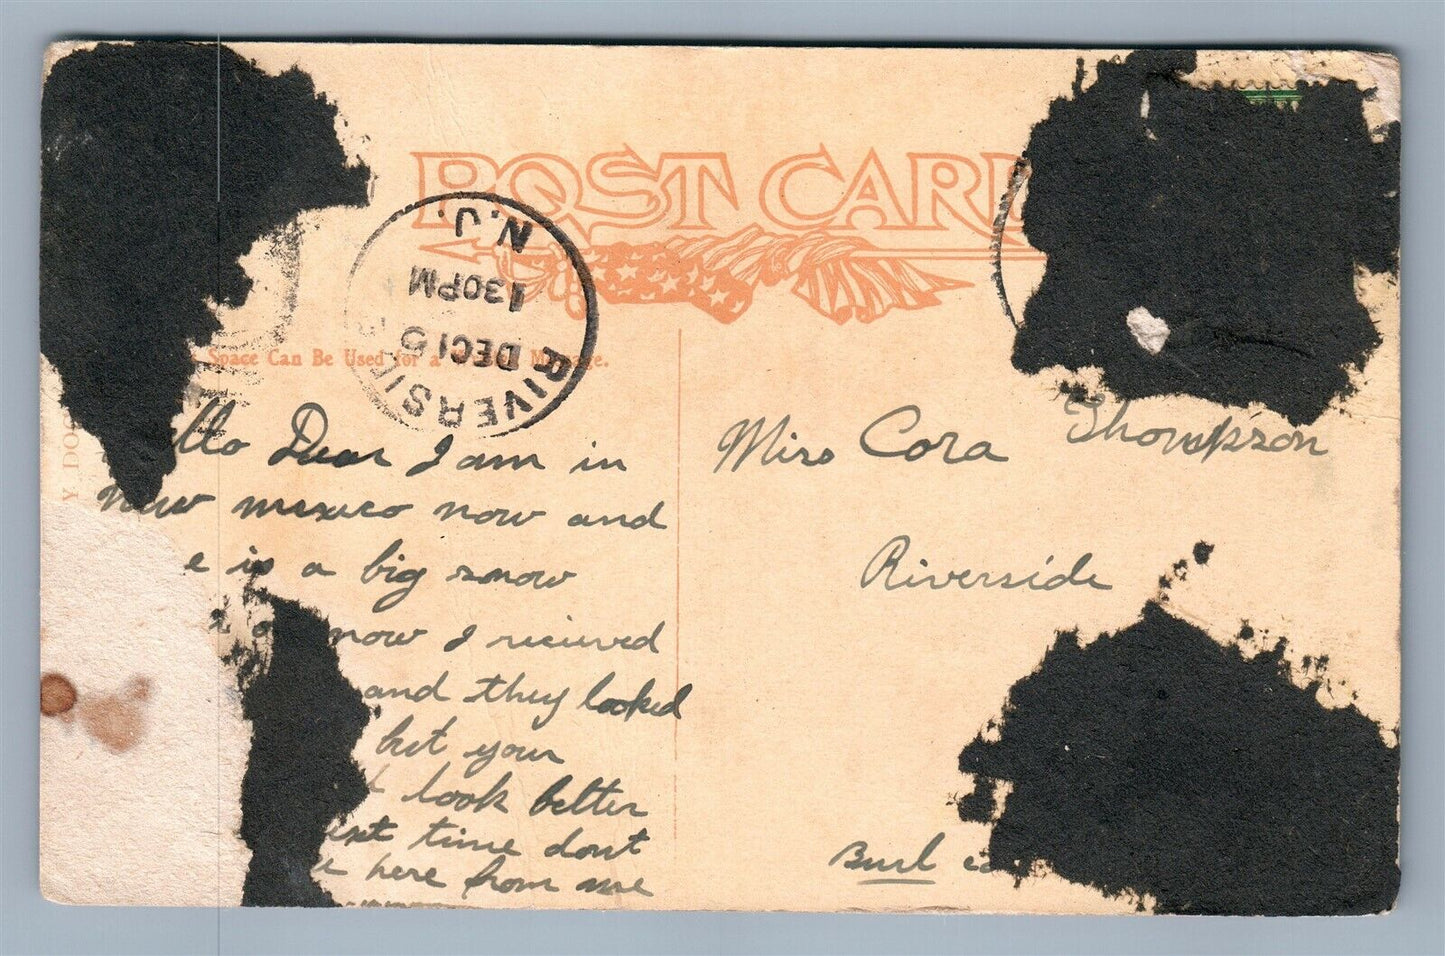 POST CARD
RIVERSIDE
N.J.
DEC 15
130PM
Space Can Be Used for a Message.
Hello Dear I am in
new mexico now and
is a big snow
now I recieved
and they looked
but your
look better
next time dont
here from me
Miss Cora Thompson
Riverside
Burl co